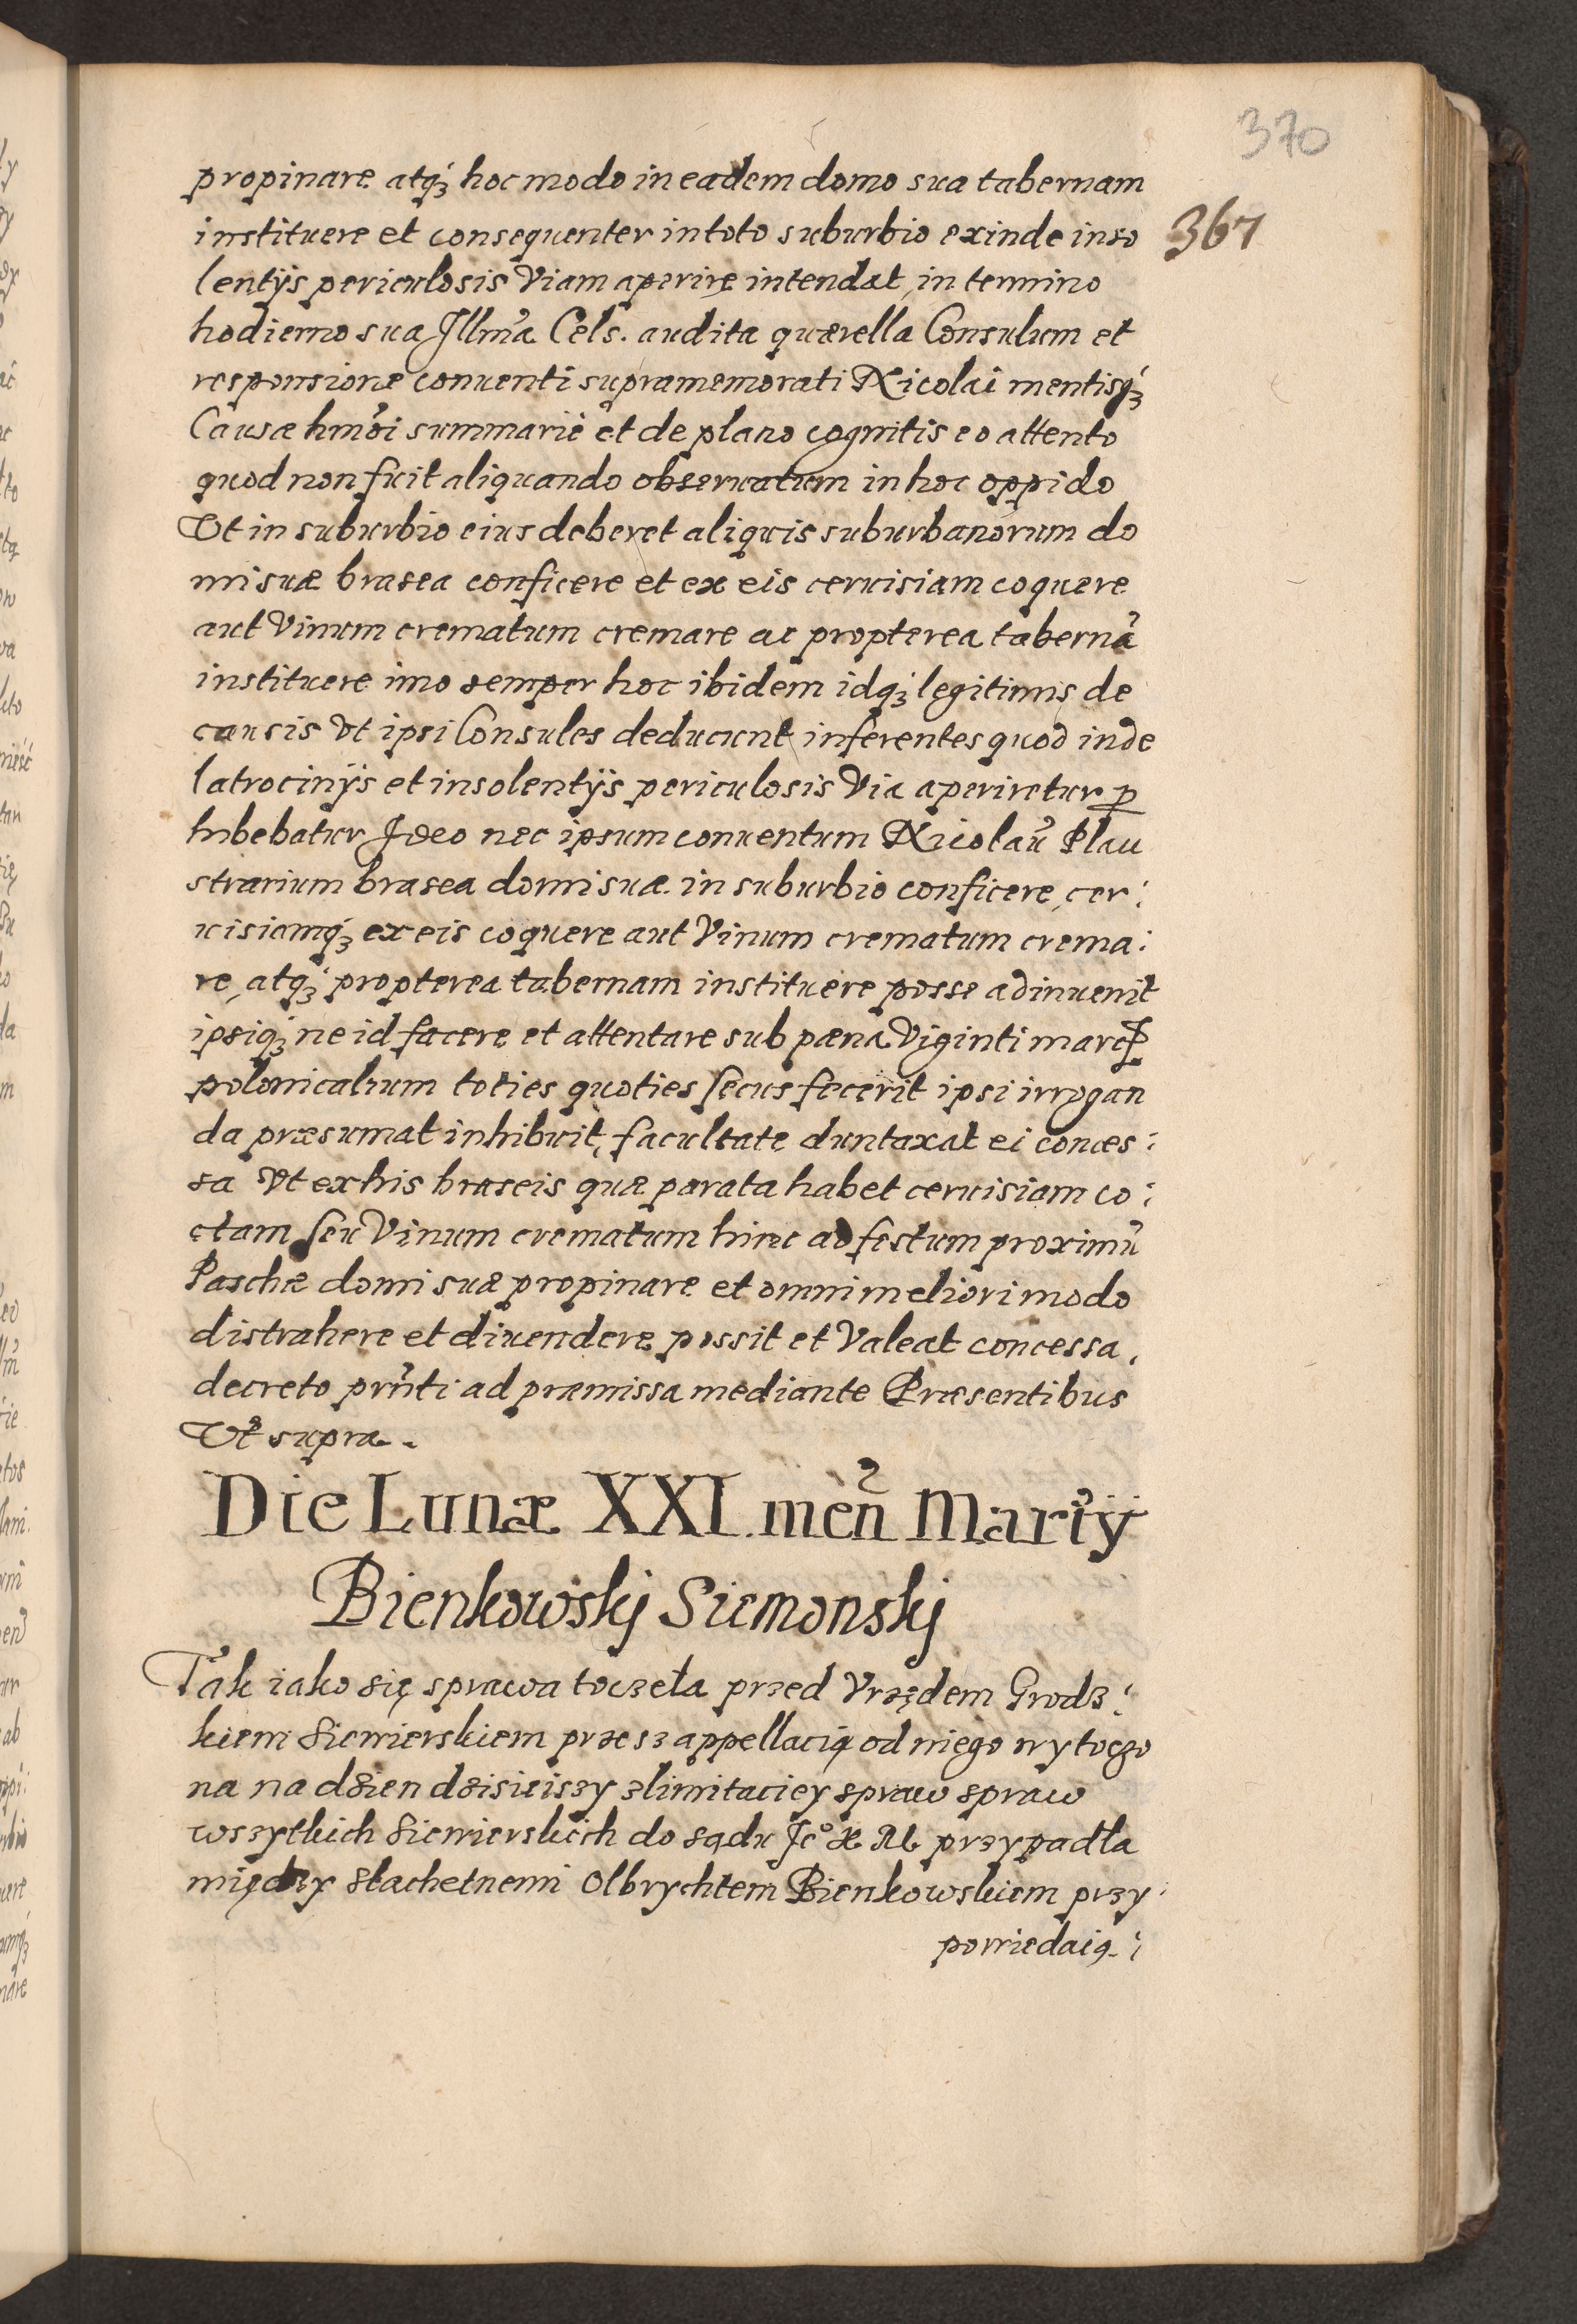 370
propinare atqȝ hoc modo in eadem domo sua tabernam
367
instituere et consequenter in toto suburbio exinde inso
lentÿs periculosis Viam aperire intendat, in termino
hodierno sua Jllma Cels. audita quærella Consulum et
responsione conuenti supramemorati Nicolai mentisqȝ
Causæ hmoi summariè et de plano cognitis eo attento
quod non fuit aliquando obseruatum in hoc oppido
Vt in suburbio eius deberet aliquis suburbanorum do
mi suæ brasea conficere et ex eis ceruisiam coquere
aut Vinum crematum cremare ac propterea taberna᷃
instituere imo semper hoc ibidem idqȝ legitimis de
causis Vt ipsi Consules deducunt inferentes quod inde
latrocinÿs et insolentÿs periculosis Via aperiretur ꝓ
hibebatur Jdeo nec ipsum conuentum Nicolau᷃ Plau
strarium brasea domi suæ in suburbio conficere, cer:
uisiamqȝ ex eis coquere aut Vinum crematum crema:
re, atqȝ propterea tabernam instituere posse adinuenit
ipsiqȝ ne id facere et attentare sub pæna Viginti marcꝭ
polonicalium toties quoties secus fecerit ipsi irrogan
da præsumat inhibuit, facultate duntaxat ei conces:
sa Vt ex his braseis quæ parata habet ceruisiam co:
ctam seu Vinum crematum hinc ad festum proximu᷃
Paschæ domi suæ propinare et omni meliori modo
distrahere et diuendere possit et Valeat concessa,
decreto prn᷃ti ad præmissa mediante Præsentibus
Vt supra.
Die Lunæ XXI. men᷃ Martÿ
Bienkowskj Siemonskj
Tak iako się sprawa toczeła przed Vrzędem Grodz:
kiem Siewierskiem przesz appellacią od niego wytoczo
na na dzien dzisieiszy z limitaciey spraw spraw
wszytkich Siewierskich do sądu Jeo X M przypadła
między slachetnemi Olbrychtem Bienkowskiem przy:
powiedaią: